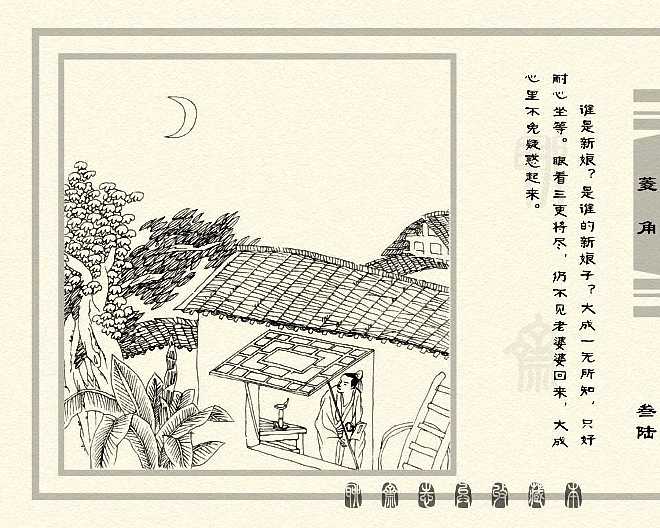 谁是新娘？是谁的新娘子？大成一无所知，只好
耐心坐等。眼看三更将尽，仍不见老婆婆回来，大成
心里不免疑惑起来。
菱角
叁陆